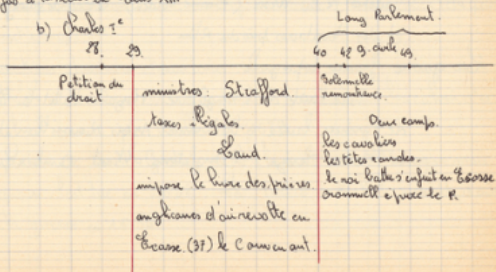 b) Charles Ie
Long Parlement.
28. 29. 40 42 g. civile 49.
Pétition du
droit
ministres. Strafford.
taxes illégales.
Laud.
impose le livre des prières
anglicanes d'où révolte en
Ecosse. (37) le Convenant.
Solennelle
remontrance.
Deux camps.
les cavaliers
les têtes rondes.
le roi battu s'enfuit en Ecosse
cromwelle épure le P.